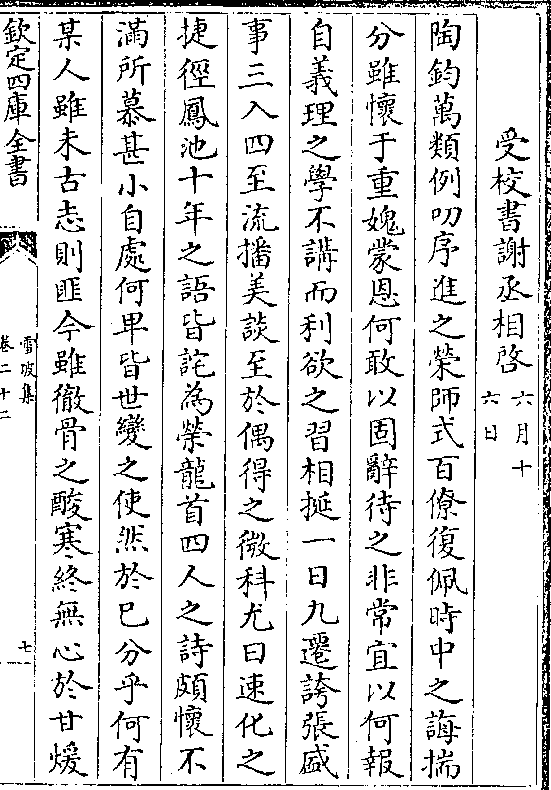 受校書謝丞相啓六月十六日
陶鈞萬類例叨序進之榮師式百僚復佩時中之誨揣
分雖懷于重媿蒙恩何敢以固辭待之非常宜以何報
自義理之學不講而利欲之習相挻一日九遷誇張盛
事三入四至流播美談至於偶得之微科尤曰速化之
捷徑鳳池十年之語皆詫為榮龍首四人之詩頗懷不
滿所慕甚小自處何卑皆世變之使然於已分乎何有
某人雖未古志則匪今雖徹骨之酸寒終無心於甘煖
欽定四庫全書
雪坡集
卷二十二
七